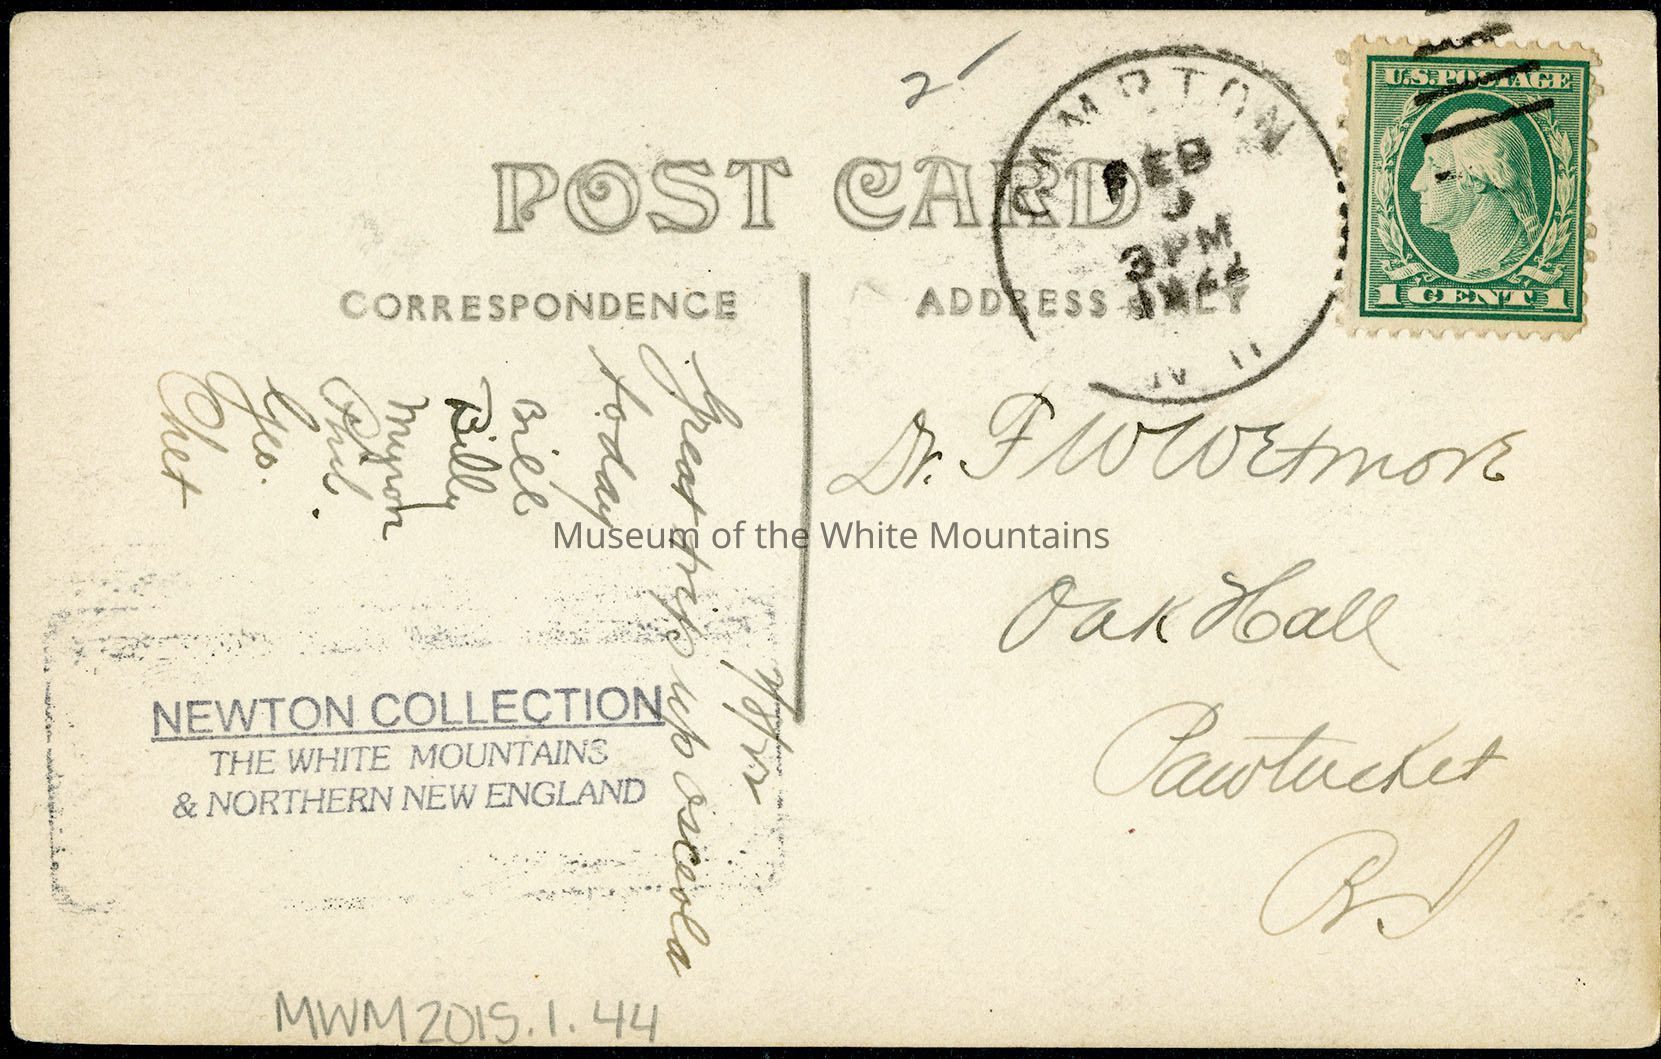 2
CAMPTON
FEB
3 PM
1922
N H
U.S. POSTAGE
1 CENT 1
POST CARD
CORRESPONDENCE
ADDRESS ONLY
Great trip up Osceola
today
Bill
Billy
Myron
Phil
Geo.
Chet
Dr. F W Wetmore
Oak Hall
Pawtucket
R I
Museum of the White Mountains
NEWTON COLLECTION
THE WHITE MOUNTAINS
& NORTHERN NEW ENGLAND
MWM2015.1.44